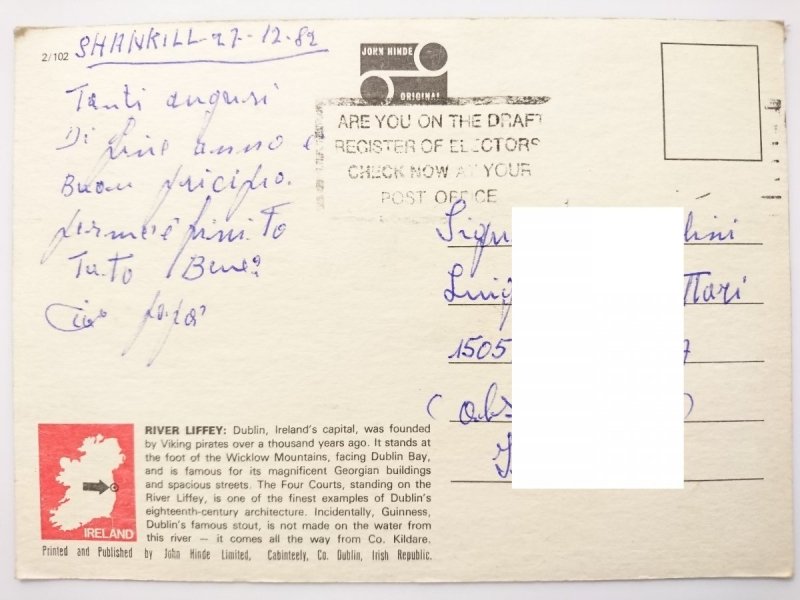 SHANKILL-27-12-82
2/102
JOHN HINDE
ORIGINAL
ARE YOU ON THE DRAFT
REGISTER OF ELECTORS
CHECK NOW AT YOUR
POST OFFICE
Tanti auguri
Di fine anno e
Buon pricipio.
per me è finito
Tuto Bene?
Ciao papà
1505
RIVER LIFFEY: Dublin, Ireland's capital, was founded
by Viking pirates over a thousand years ago. It stands at
the foot of the Wicklow Mountains, facing Dublin Bay,
and is famous for its magnificent Georgian buildings
and spacious streets. The Four Courts, standing on the
River Liffey, is one of the finest examples of Dublin's
eighteenth-century architecture. Incidentally, Guinness,
Dublin's famous stout, is not made on the water from
this river — it comes all the way from Co. Kildare.
IRELAND
Printed and Published by John Hinde Limited, Cabinteely, Co. Dublin, Irish Republic.